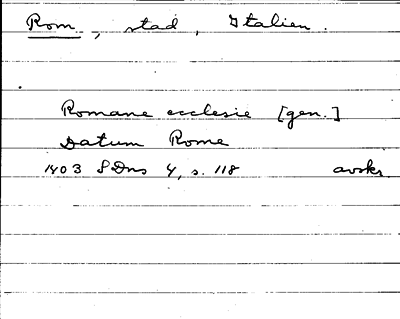 Rom, stad, Italien.
Romane ecclesie [gen.]
Datum Rome
1403 SDns 4, s. 118 avskr.